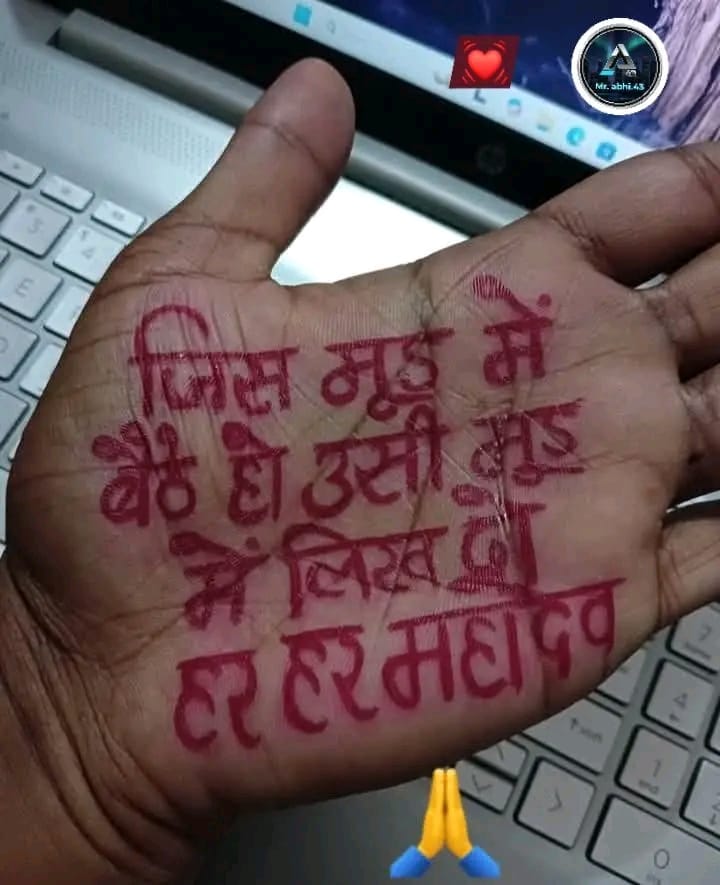 Mr. abhi.43
जिस मूड में
बैठे हो उसी मुड
में लिख दो
हर हर महादेव